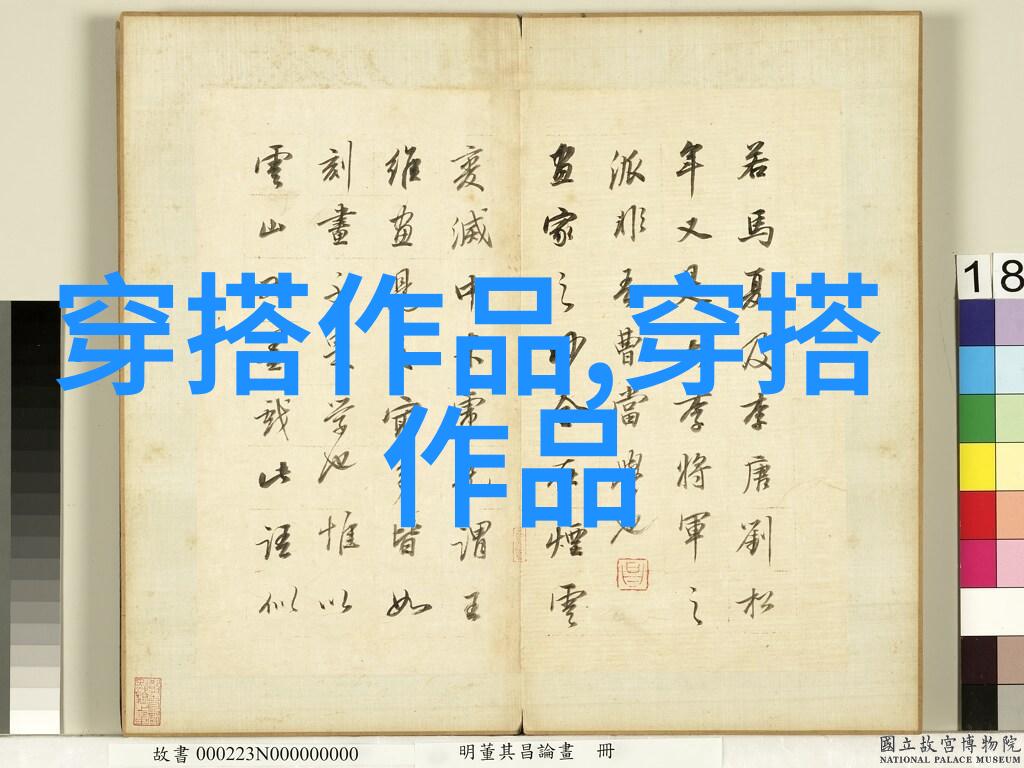 穿搭作品,穿搭
作品
若馬夏及李唐劉松
年又是大李將軍之
派非吾曹當學也
畫家之妙全在煙雲
變滅中米虎兒謂王
維畫見之最多皆如
刻畫不足學也惟以
雲山為墨戲此語似
18
故書 000223N000000000
明董其昌論畫 冊
國立故宮博物院
NATIONAL PALACE MUSEUM